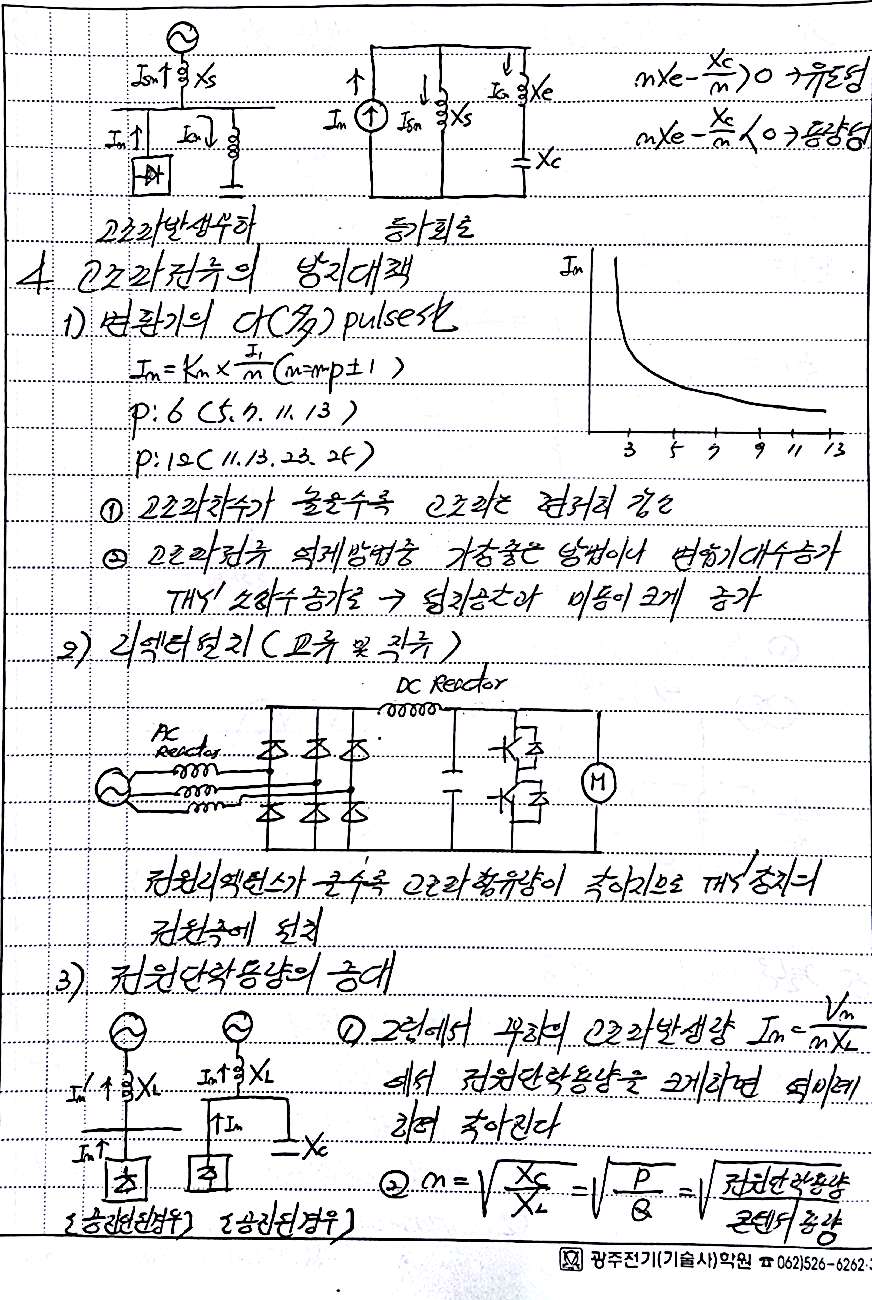 Isn↑ Xs
In↑ Icn↓
In Isn↓ Xs Icn↓ Xe
Xc
nXe-Xc/n>0→유도성
nXe-Xc/n<0→용량성
고조파발생부하 등가회로
4. 고조파전류의 방지대책
1) 변환기의 다(多) pulse화
In=Kn×I1/n (n=mp±1)
P:6 (5.7.11.13)
P:12(11.13.23.25)
In
3 5 7 9 11 13
① 고조파차수가 높을수록 고조파는 현저히 감소
② 고조파전류 억제방법중 가장좋은 방법이나 변압기대수증가
TRS' 소자수증가로 → 설치공간과 비용이 크게 증가
2) 리액터설치(교류 및 직류)
DC Reactor
AC
Reactor
M
전원리액턴스가 큰수록 고조파함유량이 작아지므로 TRS'장치의
전원측에 설치
3) 전원단락용량의 증대
In'↑ XL In↑ XL
In↑ ↑In Xc
[공진안된경우] [공진된경우]
① 그림에서 부하의 고조파발생량 In=Vn/nXL
에서 전원단락용량을 크게하면 역비례
하여 작아진다
② n=√Xc/XL=√P/Q=√전원단락용량/콘덴서용량
광주전기(기술사)학원 ☎062)526-6262·3